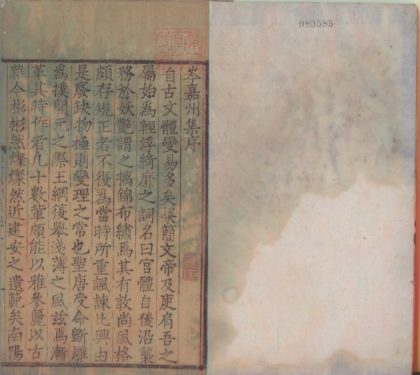 083585
岑嘉州集序
自古文體變易多矣梁簡文帝及庾肩吾之
屬始為輕浮綺靡之詞名曰宮體自後沿襲
務於妖艷謂之摛錦布繡焉其有敦尚風格
頗存規正者不復為當時所重諷諫比興由
是廢缺物極則變理之常也聖唐受命斲雕
為樸開元之際王綱復舉淺薄之風茲焉漸
革其時作者凡十數輩頗能以雅參麗以古
雜今彬彬然燦燦然近建安之遺範矣南陽